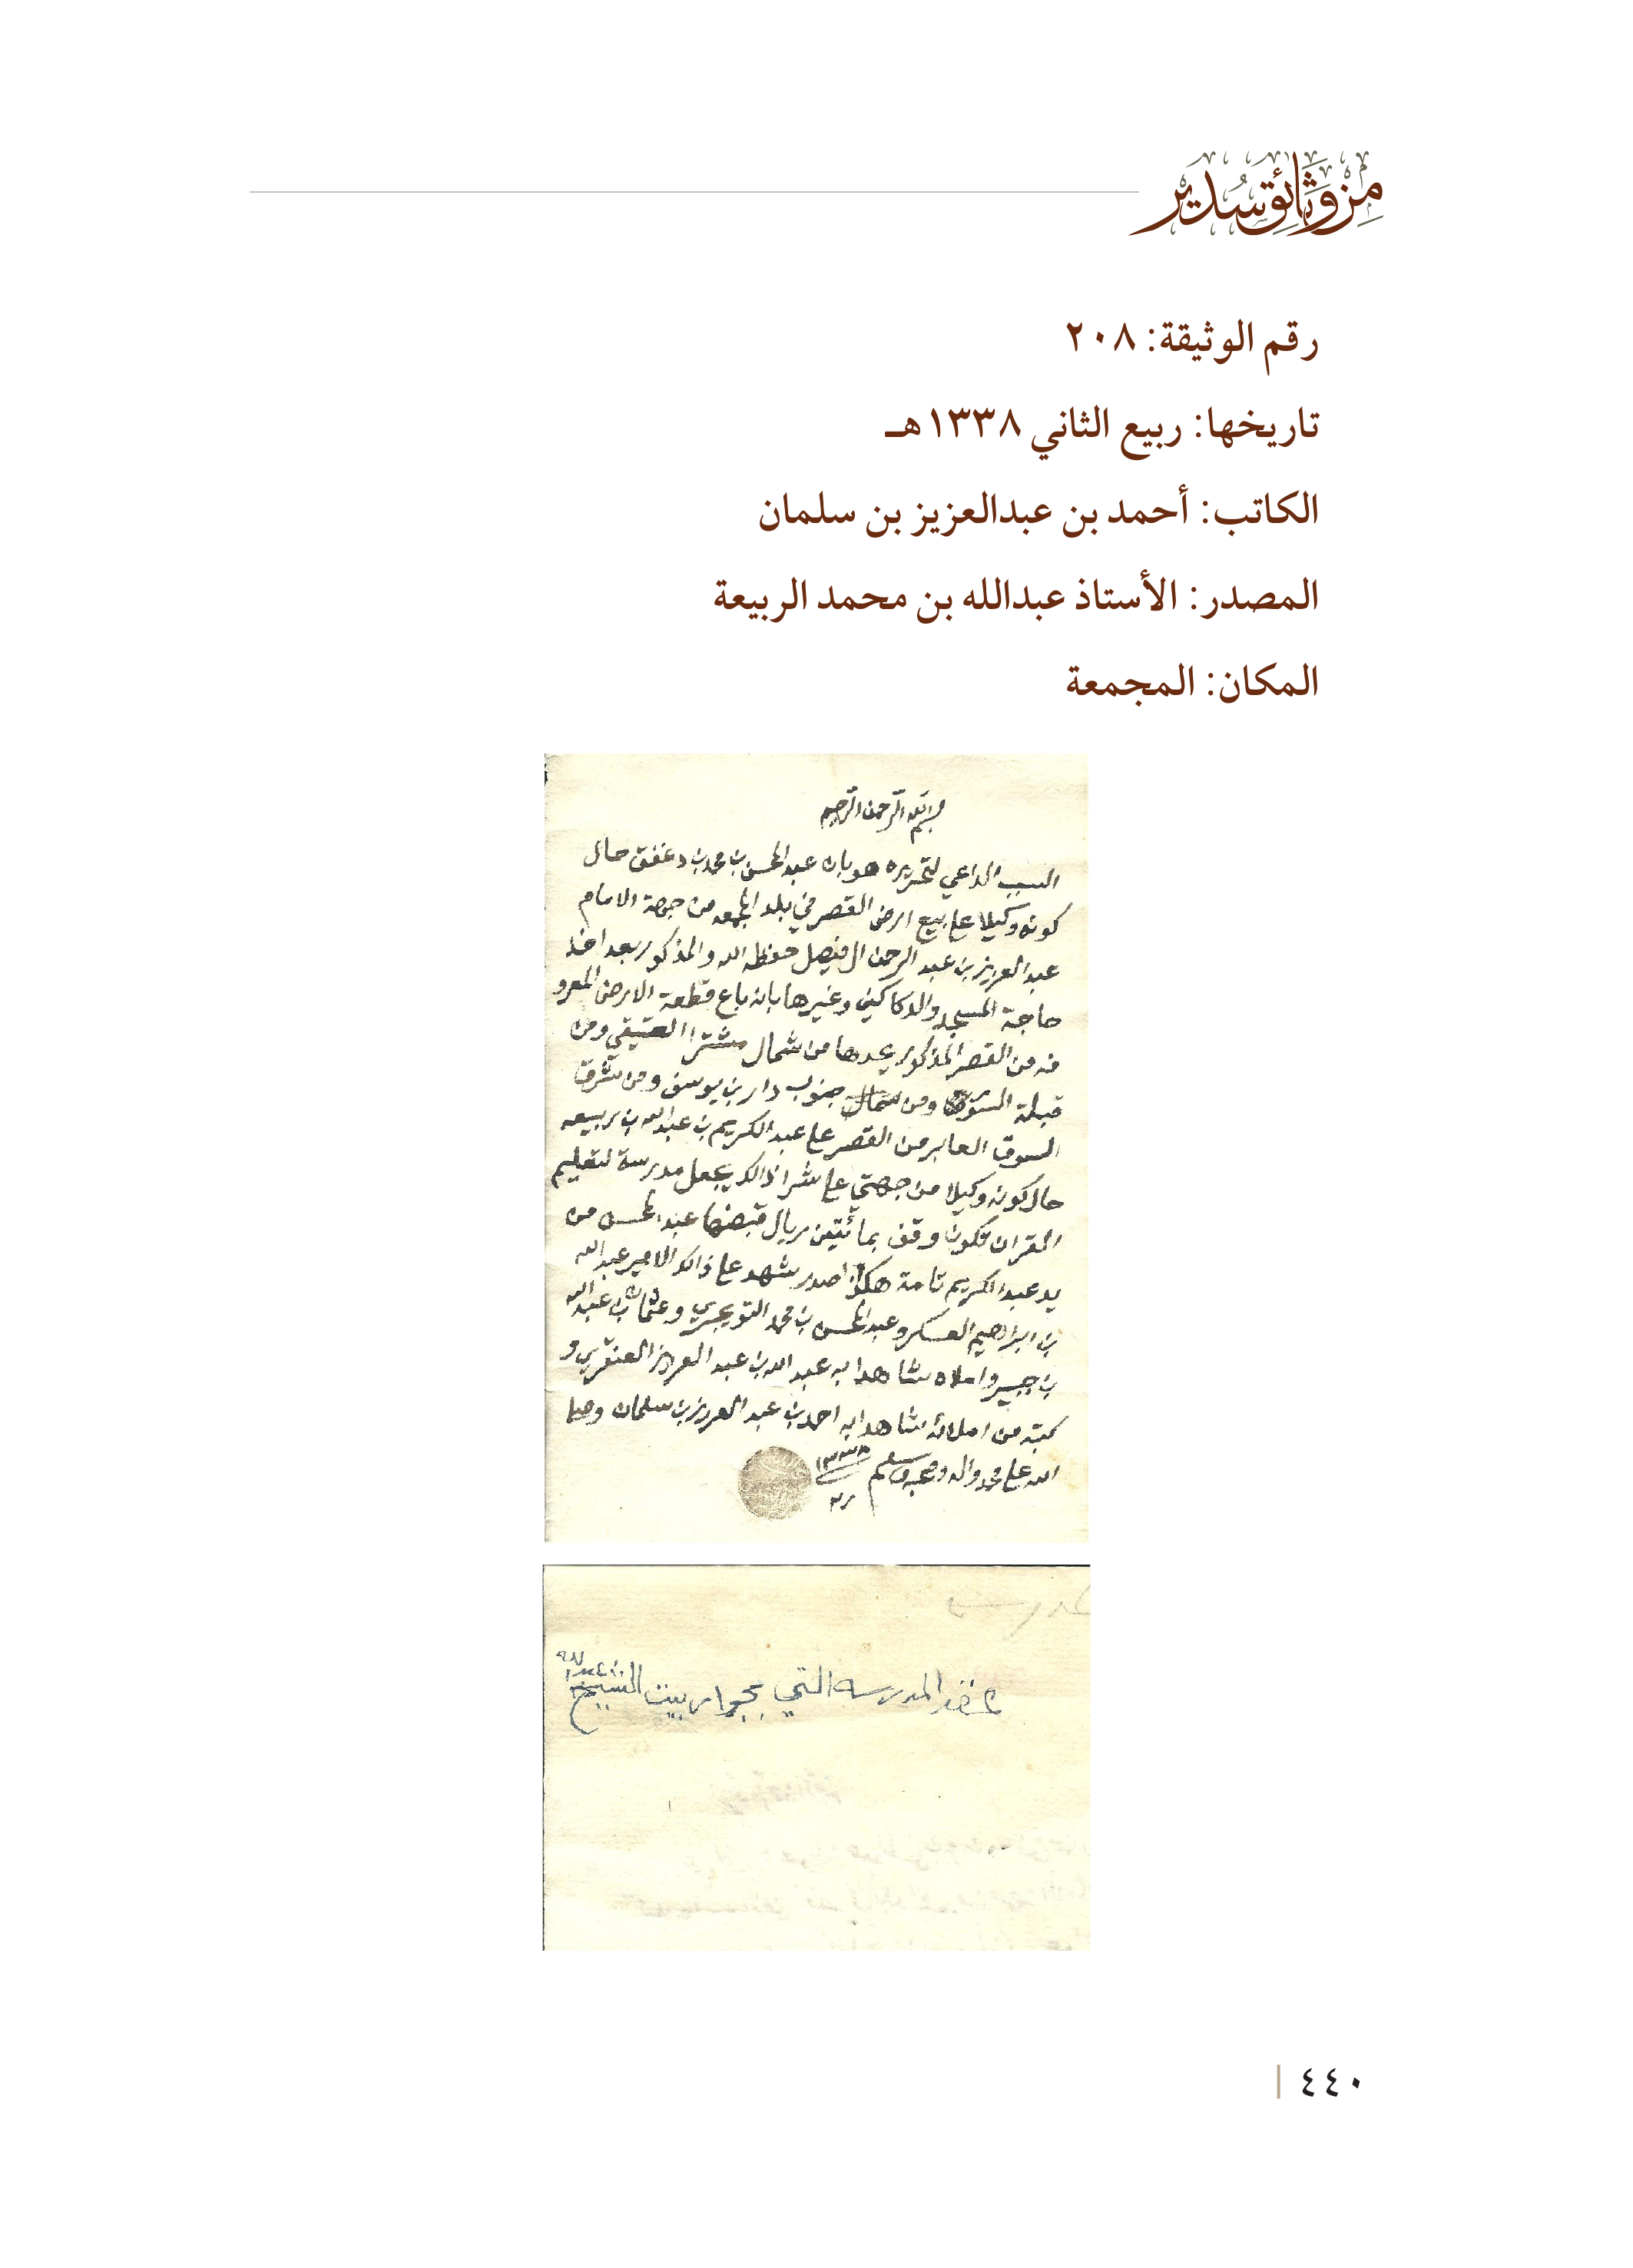 من وثائق سدير
رقم الوثيقة: ٢٠٨
تاريخها: ربيع الثاني ١٣٣٨هـ
الكاتب: أحمد بن عبدالعزيز بن سلمان
المصدر: الأستاذ عبدالله بن محمد الربيعة
المكان: المجمعة
بسم الله الرحمن الرحيم
السبب الداعي لتحريره هو بان عبد المحسن بن محمد بن دغفق حال
كونه وكيلا على بيع ارض القصر في بلد المجمعه من جهة الامام
عبد العزيز بن عبد الرحمن ال فيصل حفظه الله والمذكور بعد اخذ
حاجة المسجد والدكاكين وغيرها بانه باع قطعة الارض المعرو
فه من القصر المذكور يحدها من شمال مشترا العتيقي ومن
قبلة السوق ومن شمال جنوب دار بن يوسف ومن شرق
السوق العابر من القصر على عبد الكريم بن عبد الله بن ربيعه
حال كونه وكيلا من جهتي على شرا ذالك يجعل مدرسة لتعليم
القران تكون وقف بمائتين ريال قبضها عبد المحسن من
يد عبد الكريم تامة هكذا صدر شهد على ذالك الامير عبد الله
بن ابراهيم العسكر وعبد المحسن بن محمد التويجري وعثمان بن عبد الله
بن جبير واملاه شاهدا به عبد الله بن عبد العزيز العنقري و
كتبه من املائه شاهدا به احمد بن عبد العزيز بن سلمان وصلى
الله على محمد واله وصحبه وسلم ١٣٣٨
ر٢
عقد المدرسه التي بجوار بيت الشيخ
٤٤٠